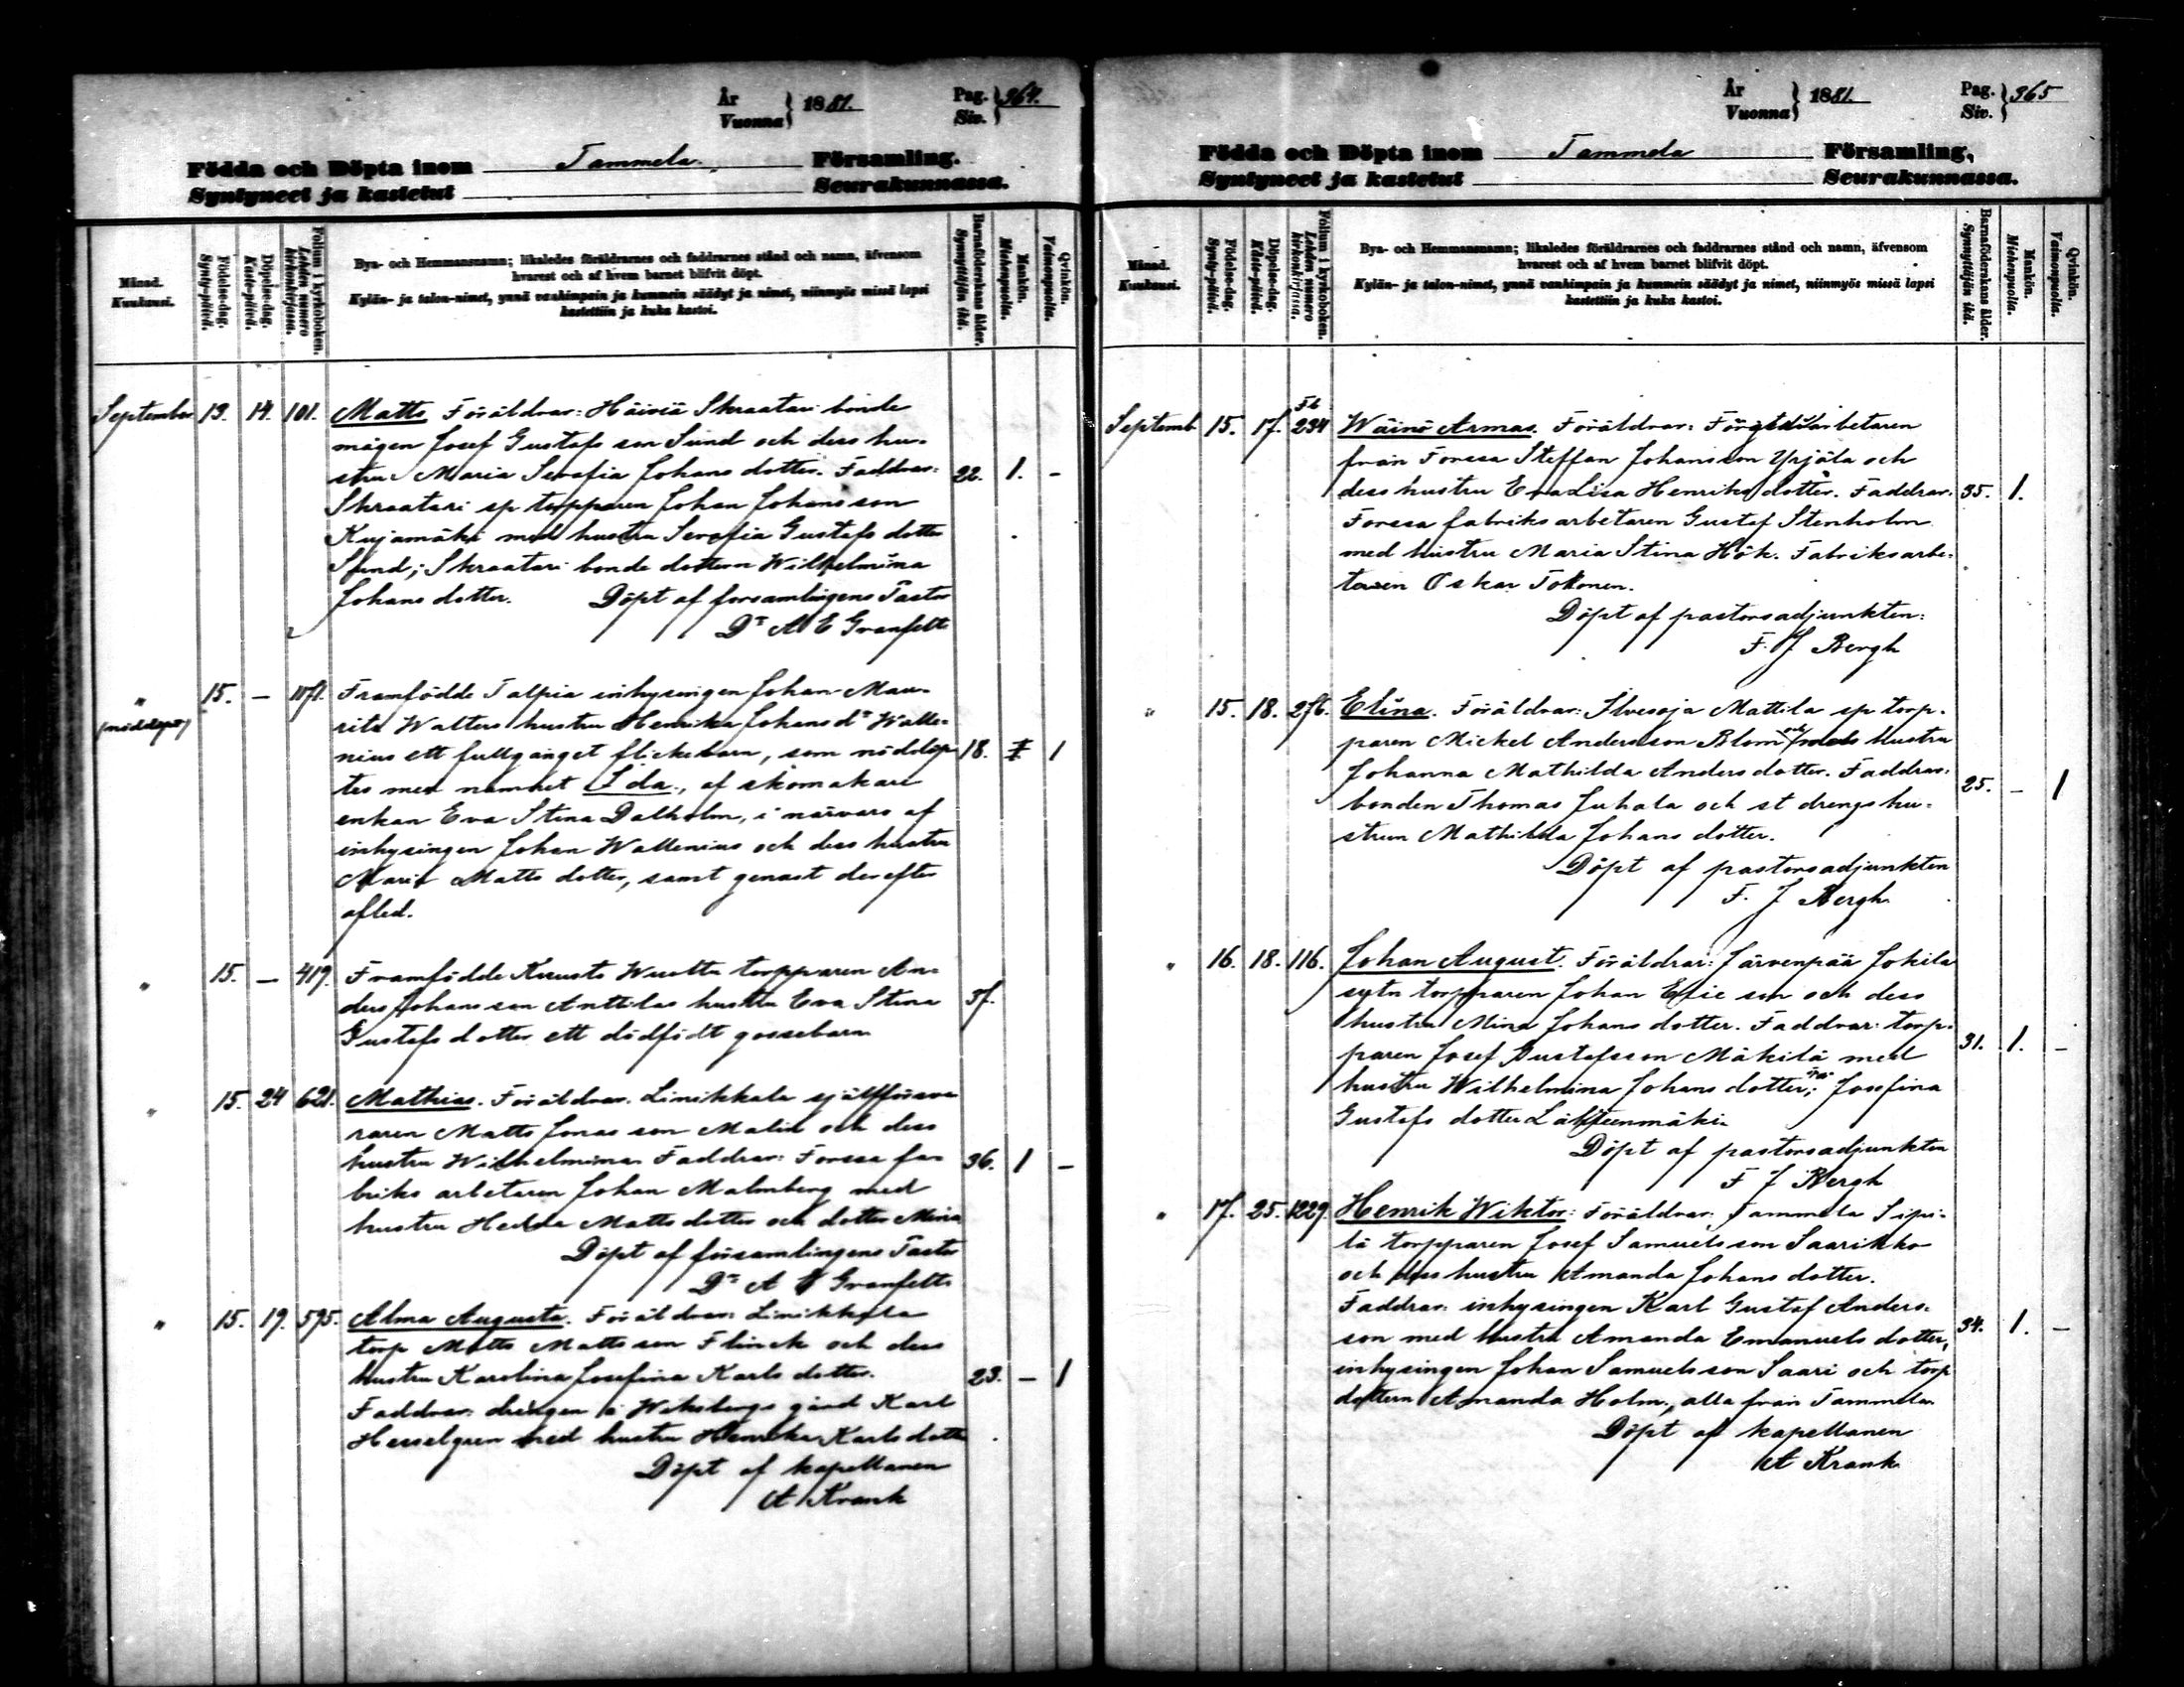 År
Vuonna } 1881.
Pag.
Siv. } 364.
Födda och Döpta inom Tammela Församling.
Syntyneet ja kastetut Seurakunnassa.
Månad.
Kuukausi.
Födelse-dag.
Synty-päivä.
Döpelse-dag.
Kaste-päivä.
Folium i kyrkoboken.
Lehden numero kirkonkirjassa.
Bya- och Hemmansnamn; likaledes föräldrarnes och faddrarnes stånd och namn, äfvensom
hvarest och af hvem barnet blifvit döpt.
Kylän- ja talon-nimet, ynnä vanhimpain ja kummein säädyt ja nimet, niinmyös missä lapsi
kastettiin ja kuka kastoi.
Barnaföderskans ålder.
Synnyttäjän ikä.
Mankön.
Miehenpuolia.
Qvinkön.
Vaimonpuolia.
September 13. 14. 101. Matts Föräldrar: Häiviä Skraatari bonde
mågen Josef Gustafs son Sund och dess hu-
stru Maria Serafia Johans dotter. Faddrar: 22. 1. -
Skraatari sp torpparen Johan Johans son
Kujamäki med hustru Serafia Gustafs dotter
Sund; Skraatari bonde dottern Wilhelmina
Johans dotter. Döpt af forsamlingens Pastor
Dr A E Granfelt
" (nöddöpt) 15. - 1071. Framfödde Talpia inhysingen Johan Mau-
ritz Walters hustru Henrika Johans dr Walle-
nius ett fullgånget flickebarn, som nöddöp- 18. 1
tes med namnet Ida, af skomakare
enkan Eva Stina Dalholm, i närvaro af
inhysingen Johan Wallenius och dess hustru
Maria Matts dotter, samt genast derefter
afled.
" 15. - 419. Framfödde Kuusto Wuotta torpparen An-
ders Johans son Anttilas hustru Eva Stina 37.
Gustafs dotter ett dödfödt gossebarn
" 15. 24 621. Mathias. Föräldrar. Linikkala sjelfförsva
raren Matts Jonas son Malin och dess
hustru Wilhelmina Faddrar: Forssa fa- 36. 1 -
briks arbetaren Johan Malmberg med
hustru Hedda Matts dotter och dotter Mina
Döpt af församlingens Pastor
Dr A E Granfelt
" 15. 19. 595. Alma Augusta. Föräldrar: Linikkala
torp Matts Matts son Flinck och dess
hustru Karolina Josefina Karls dotter. 23. - 1
Faddrar: drängen å Wiksbergs gård Karl
Hesselgren med hustru Henrika Karls dotter
Döpt af kapellanen
A Krank
År
Vuonna } 1881.
Pag.
Siv. } 365
Födda och Döpta inom Tammela Församling,
Syntyneet ja kastetut Seurakunnassa.
Månad.
Kuukausi.
Födelse-dag.
Synty-päivä.
Döpelse-dag.
Kaste-päivä.
Folium i kyrkoboken.
Lehden numero kirkonkirjassa.
Bya- och Hemmansnamn; likaledes föräldrarnes och faddrarnes stånd och namn, äfvensom
hvarest och af hvem barnet blifvit döpt.
Kylän- ja talon-nimet, ynnä vanhimpain ja kummein säädyt ja nimet, niinmyös missä lapsi
kastettiin ja kuka kastoi.
Barnaföderskans ålder.
Synnyttäjän ikä.
Mankön.
Miehenpuolia.
Qvinkön.
Vaimonpuolia.
Fb
Septemb 15. 17. 234 Wäinö Armas. Föräldrar:
från Forssa Steffan Johans son Yrjälä och
dess hustru Eva Lisa Henriks dotter. Faddrar: 35. 1.
Forssa fabriks arbetaren Gustaf Stenholm
med hustru Maria Stina Hök. Fabriksarbe-
taren Oskar Tokonen.
Döpt af pastorsadjunkten:
F. J Bergh
" 15. 18. 276. Elina. Föräldrar: Ilvesoja Mattila sp torp-
paren Mickel Andersson Blom och hustru
Johanna Mathilda Anders dotter. Faddrar:
bonden Thomas Juhala och st drengs hu- 25. - 1
strun Mathilda Johans dotter.
Döpt af pastorsadjunkten
F. J Bergh
" 16. 18. 116. Johan August. Föräldrar: Järvenpää Jokila
sytn torpparen Johan Efie son och dess
hustru Mina Johans dotter. Faddrar: torp-
paren Josef Gustafsson Mäkilä med 31. 1. -
hustru Wilhelmina Johans dotter; Josefina
Gustafs dotter Lähteenmäki.
Döpt af pastorsadjunkten
F J Bergh
" 17. 25. 1229. Henrik Wiktor: Föräldrar: Tammela Sipi-
lä torpparen Josef Samuels son Saarikko
och dess hustru Amanda Johans dotter.
Faddrar: inhysingen Karl Gustaf Anders-
son med hustru Amanda Emanuels dotter, 34. 1. -
inhysingen Johan Samuels son Saari och torp
dottern Amanda Holm, alla från Tammela
Döpt af kapellanen
A Krank